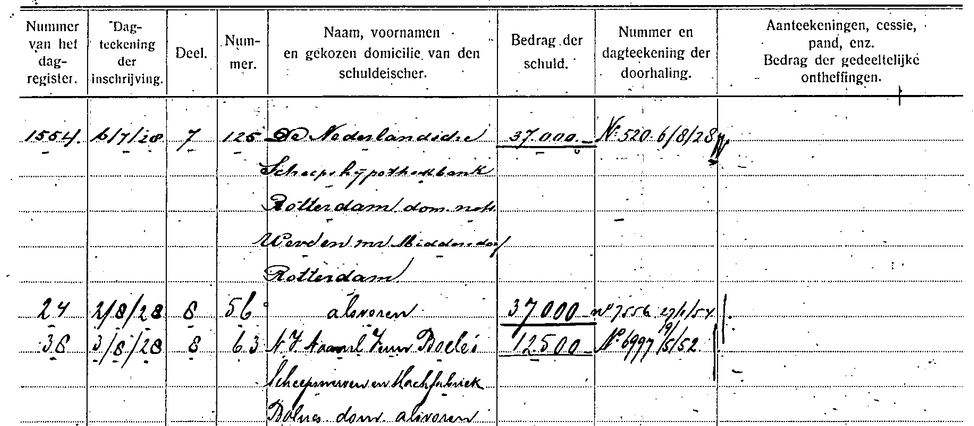 Nummer van het dag-register. Dag-teekening der inschrijving. Deel. Num-mer. Naam, voornamen en gekozen domicilie van den schuldeischer. Bedrag der schuld. Nummer en dagteekening der doorhaling. Aanteekeningen, cessie, pand, enz. Bedrag der gedeeltelijke ontheffingen.
1554. 6/7/28 7 125 De Nederlandsche 37.000.- No. 520 6/8/28
Scheepshypotheekbank
Rotterdam dom. not.
Rotterdam
24 2/8/28 8 56 alsvoren 37000 no 7556 27/1/54
38 3/8/28 8 63 N.V. Boele's 12500 No. 6997 19/5/52
Scheepswerven en Machfabriek
Bolnes dom. alsvoren